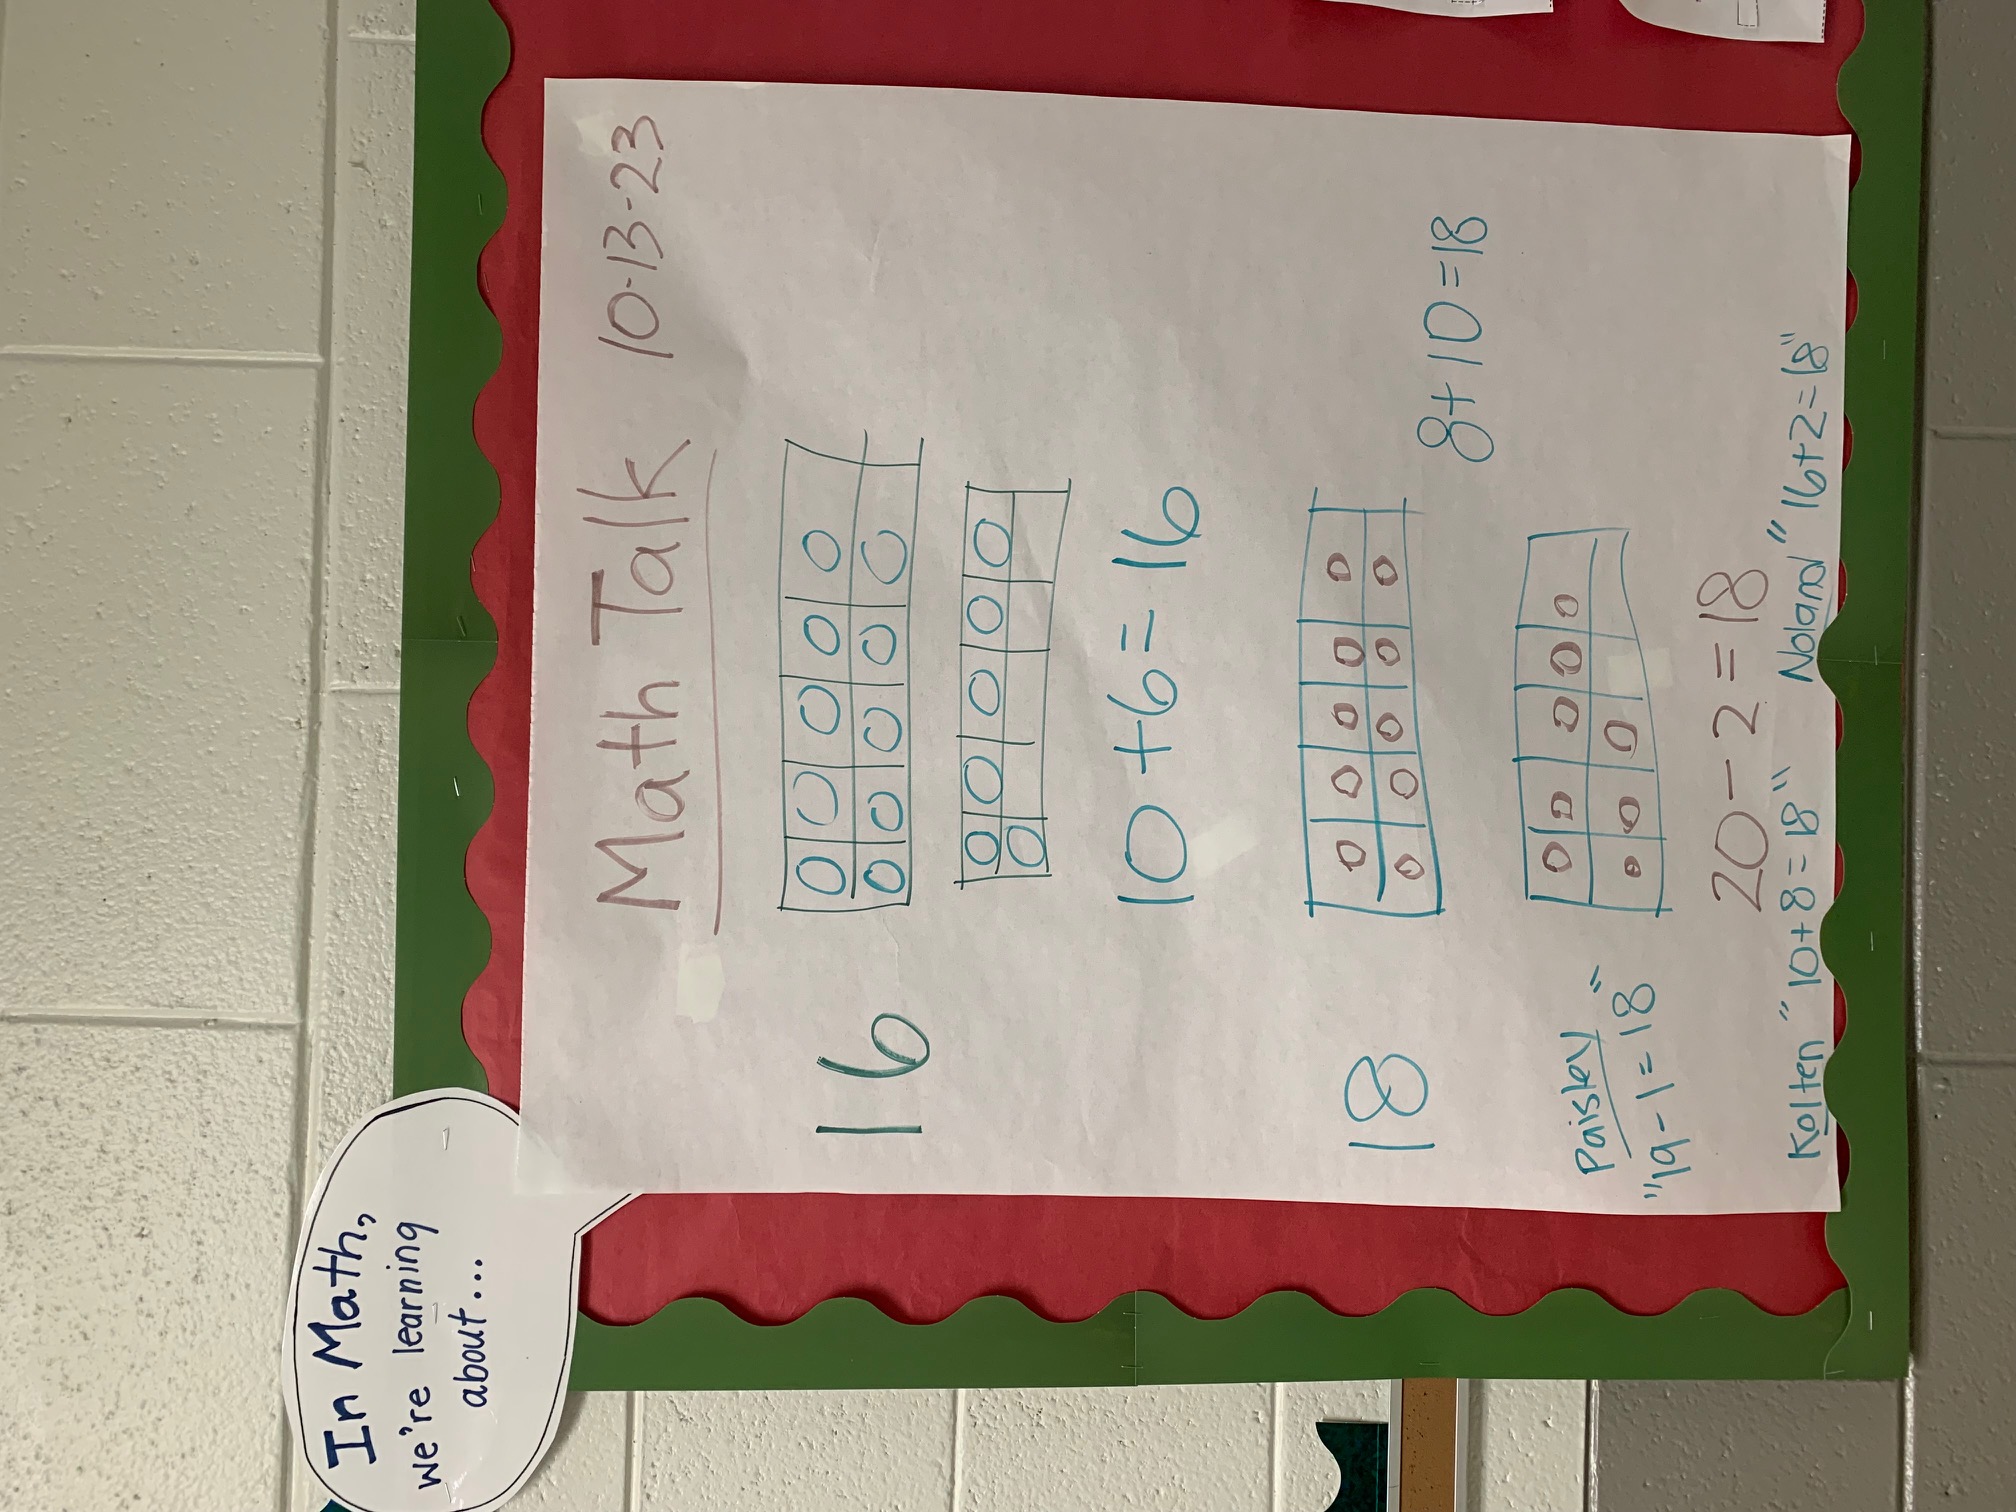 In Math,
we're learning
about...
Math Talk 10-13-23
16
10+6=16
18
8+10=18
Paisley
"19-1=18"
20-2=18
Kolten "10+8=18" Noland "16+2=18"